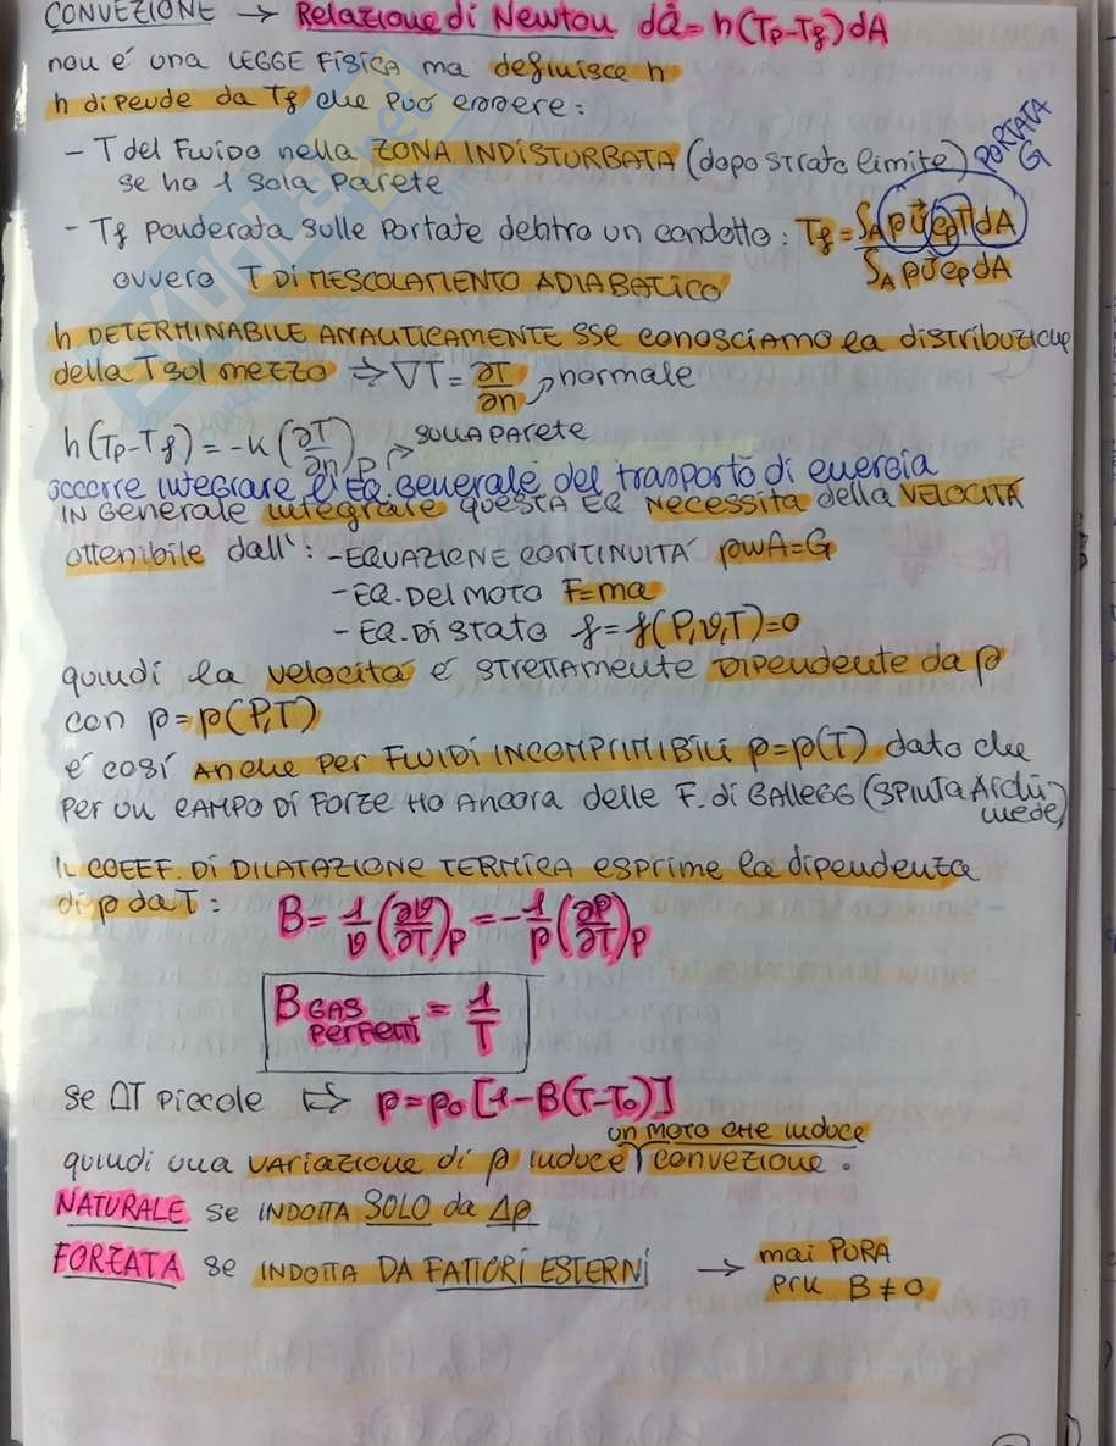 CONVEZIONE → Relazione di Newton dQ̇=h(Tp-Tf)dA
non é una LEGGE FISICA ma definisce h
h dipende da Tf che può essere:
- T del FLUIDO nella ZONA INDISTURBATA (dopo strato limite)
se ho 1 sola parete
PORTATA G
- Tf ponderata sulle portate dentro un condotto: Tf = ∫A ρv⃗cpTdA / ∫A ρv⃗cpdA
ovvero T DI MESCOLAMENTO ADIABATICO
h DETERMINABILE ANALITICAMENTE SSE conosciamo la distribuzione
della T sol mezzo ⇒ ∇T = ∂T/∂n → normale
h(Tp-Tf) = -k (∂T/∂n)p → SULLA PARETE
occorre integrare l'EQ. Generale del trasporto di energia
IN Generale integrare questa EQ necessita della VELOCITÀ
ottenibile dall': - EQUAZIONE CONTINUITÀ ρwA=G
- EQ. Del MOTO F=ma
- EQ. Di stato f=f(P,v,T)=0
quindi la velocità é strettamente DIPendente da ρ
con ρ=ρ(P,T)
é così anche per FLUIDI INCOMPRIMIBILI ρ=ρ(T) dato che
Per un CAMPO DI FORZE HO ANCORA delle F. di GALLEGG (SPINTA Archi-
mede)
IL COEFF. DI DILATAZIONE TERMICA esprime la dipendenza
di ρ da T: B = 1/v (∂v/∂T)P = -1/ρ (∂ρ/∂T)P
B GAS PERFETTI = 1/T
se ΔT piccole ⇒ ρ=ρ0[1-B(T-T0)]
un moto che induce
quindi una variazione di ρ induce convezione.
NATURALE se INDOTTA SOLO da Δρ
FORZATA se INDOTTA DA FATTORI ESTERNI → mai PURA
prk B≠0